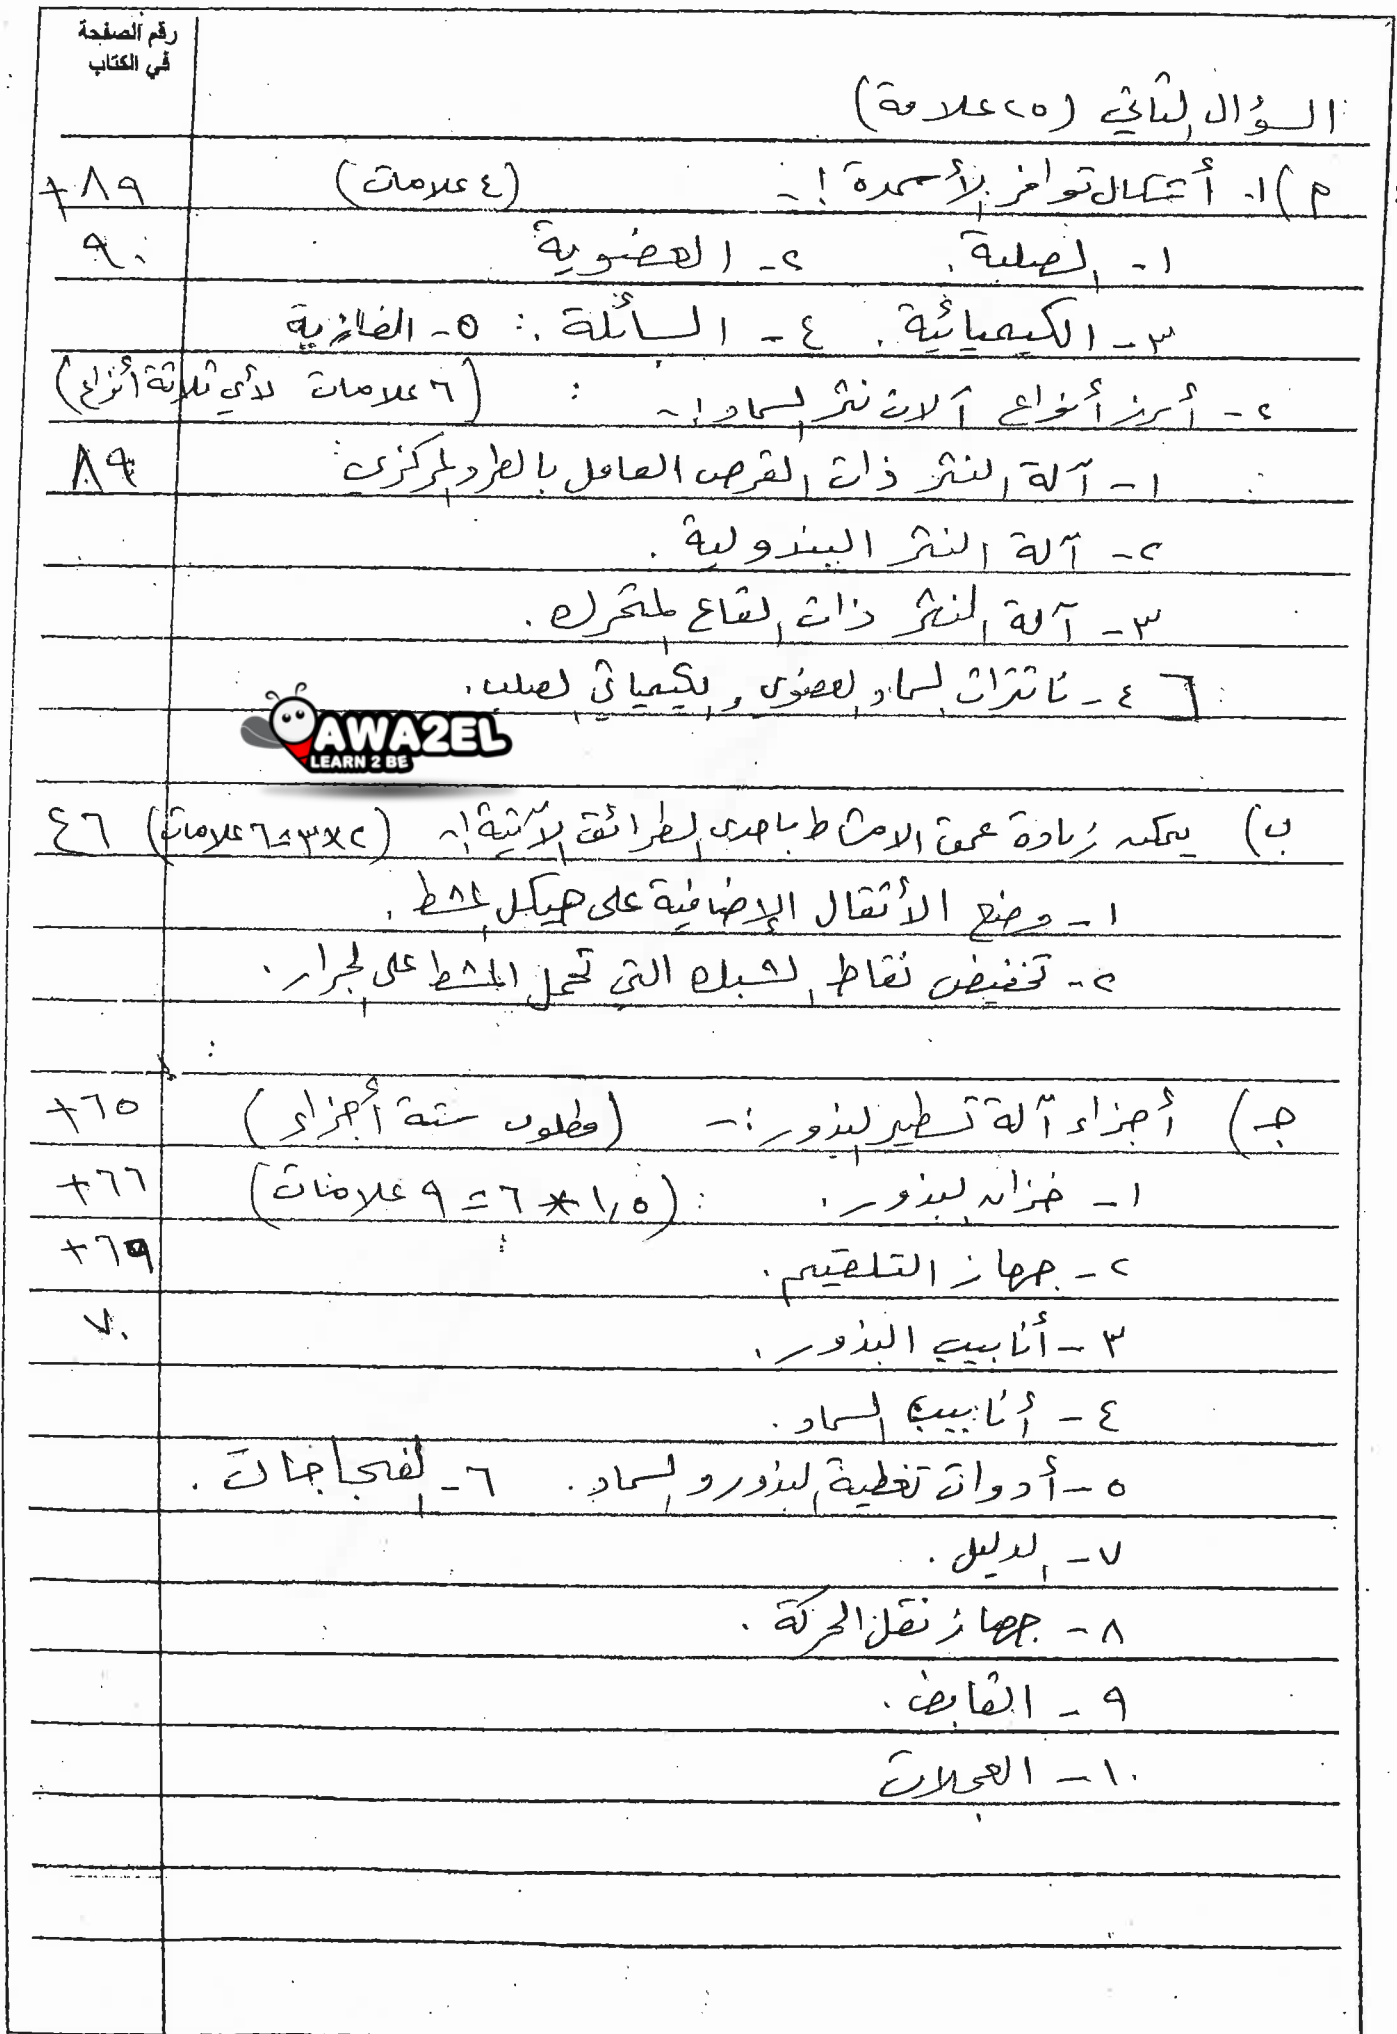 رقم الصفحة
في الكتاب
السؤال الثاني (٢٥ علامة)
أ) ١- أشكال توافر الأسمدة :- (٤ علامات) ٨٩+
١- الصلبة. ٢- العضوية ٩٠
٣- الكيميائية. ٤- السائلة. ٥- الغازية
٢- أبرز أنواع آلات نثر السماد :- (٦ علامات لأي ثلاثة أنواع)
١- آلة النثر ذات القرص العامل بالطرد المركزي ٨٩
٢- آلة النثر البندولية.
٣- آلة النثر ذات القاع المتحرك.
٤- ناثرات السماد العضوي والكيميائي الصلب.
AWA2EL
LEARN 2 BE
ب) يمكن زيادة عمق الامشاط باحدى الطرائق الآتية :- (٢×٣=٦ علامات) ٤٦
١- وضع الأثقال الإضافية على هيكل المشط.
٢- تخفيض نقاط الشبك التي تحمل المشط على الجرار.
جـ) أجزاء آلة تسطير البذور :- (مطلوب ستة أجزاء) ٦٥+
١- خزان البذور. (١,٥ * ٦ = ٩ علامات) ٦٦+
٢- جهاز التلقيم. ٦٩+
٣- أنابيب البذور. ٧٠
٤- أنابيب السماد.
٥- أدوات تغطية البذور والسماد. ٦- الفجاجات.
٧- الدليل.
٨- جهاز نقل الحركة.
٩- القابض.
١٠- العجلات